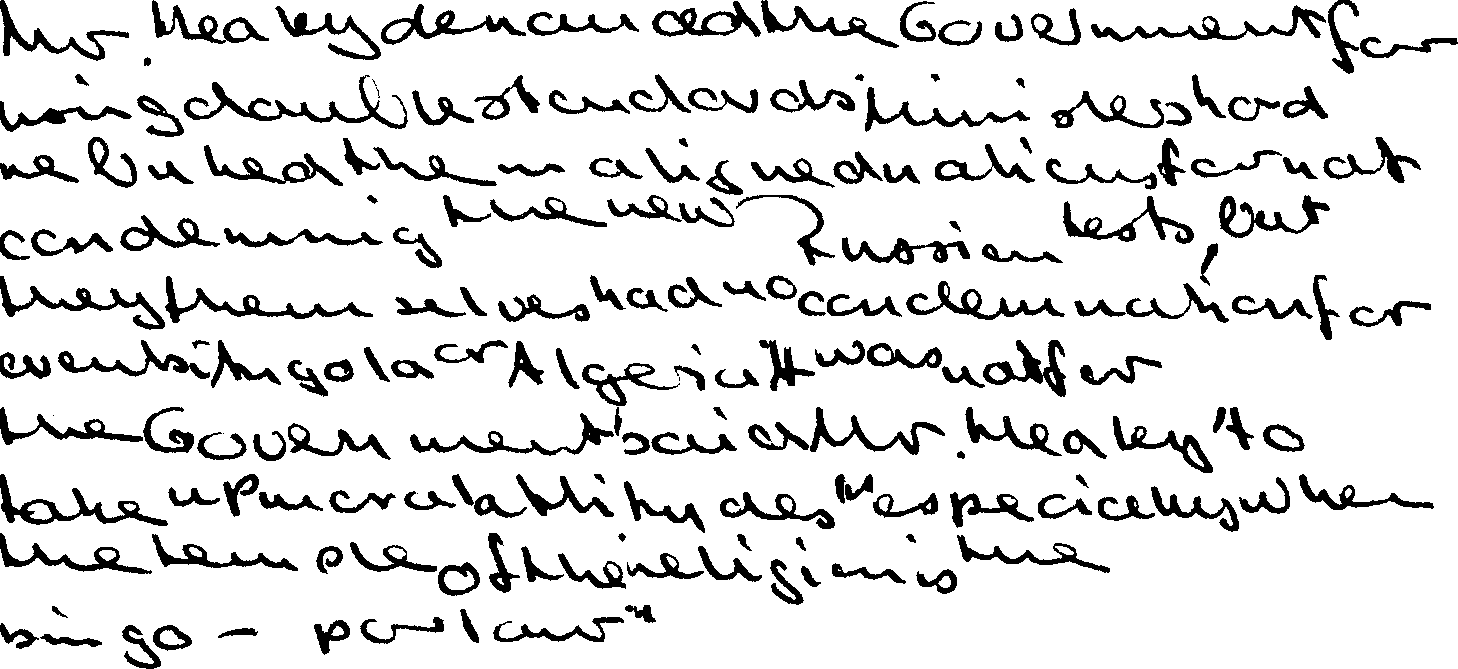 Mr. Heaky denounced the Government for
using double standards; Ministers had
rebuked the non aligned nations for not
condemning the new Russian tests, but
they themselves had no condemnation for
events in Angola or Algeria. "It was not for
the Government" said Mr. Heaky "to
take up moral attitudes" "especially when
the temple of their religion is the
bingo - parlour"